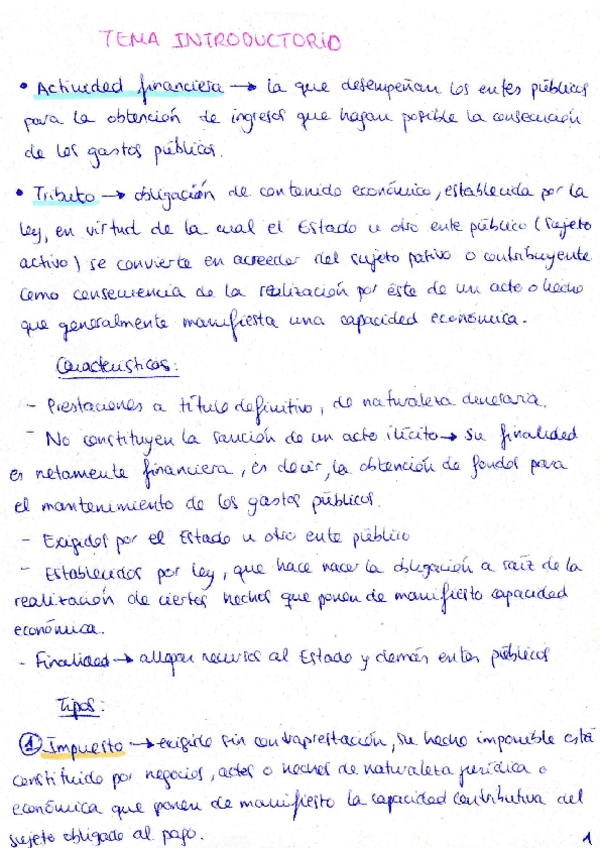 TEMA INTRODUCTORIO
• Actividad financiera → la que desempeñan los entes públicos
para la obtención de ingresos que hagan posible la consecución
de los gastos públicos.
• Tributo → obligación de contenido económico, establecida por la
ley, en virtud de la cual el Estado u otro ente público (sujeto
activo) se convierte en acreedor del sujeto pasivo o contribuyente
como consecuencia de la realización por éste de un acto o hecho
que generalmente manifiesta una capacidad económica.
Características:
- Prestaciones a título definitivo, de naturaleza dineraria.
- No constituyen la sanción de un acto ilícito → su finalidad
es netamente financiera, es decir, la obtención de fondos para
el mantenimiento de los gastos públicos.
- Exigidos por el Estado u otro ente público
- Establecidos por ley, que hace nacer la obligación a raíz de la
realización de ciertos hechos que ponen de manifiesto capacidad
económica.
- Finalidad → allegar recursos al Estado y demás entes públicos
Tipos:
① Impuesto → exigido sin contraprestación, su hecho imponible está
constituido por negocios, actos o hechos de naturaleza jurídica o
económica que ponen de manifiesto la capacidad contributiva del
sujeto obligado al pago.
1